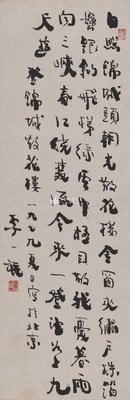 日照錦城頭朝光散花樓金窗夾繡戶珠箔
懸銀鉤飛梯綠雲中極目散我憂暮雨
向三峽春江繞雙流今來一登望如上九
天遊 登錦城散花樓 一九七九夏寫於北京
李一氓